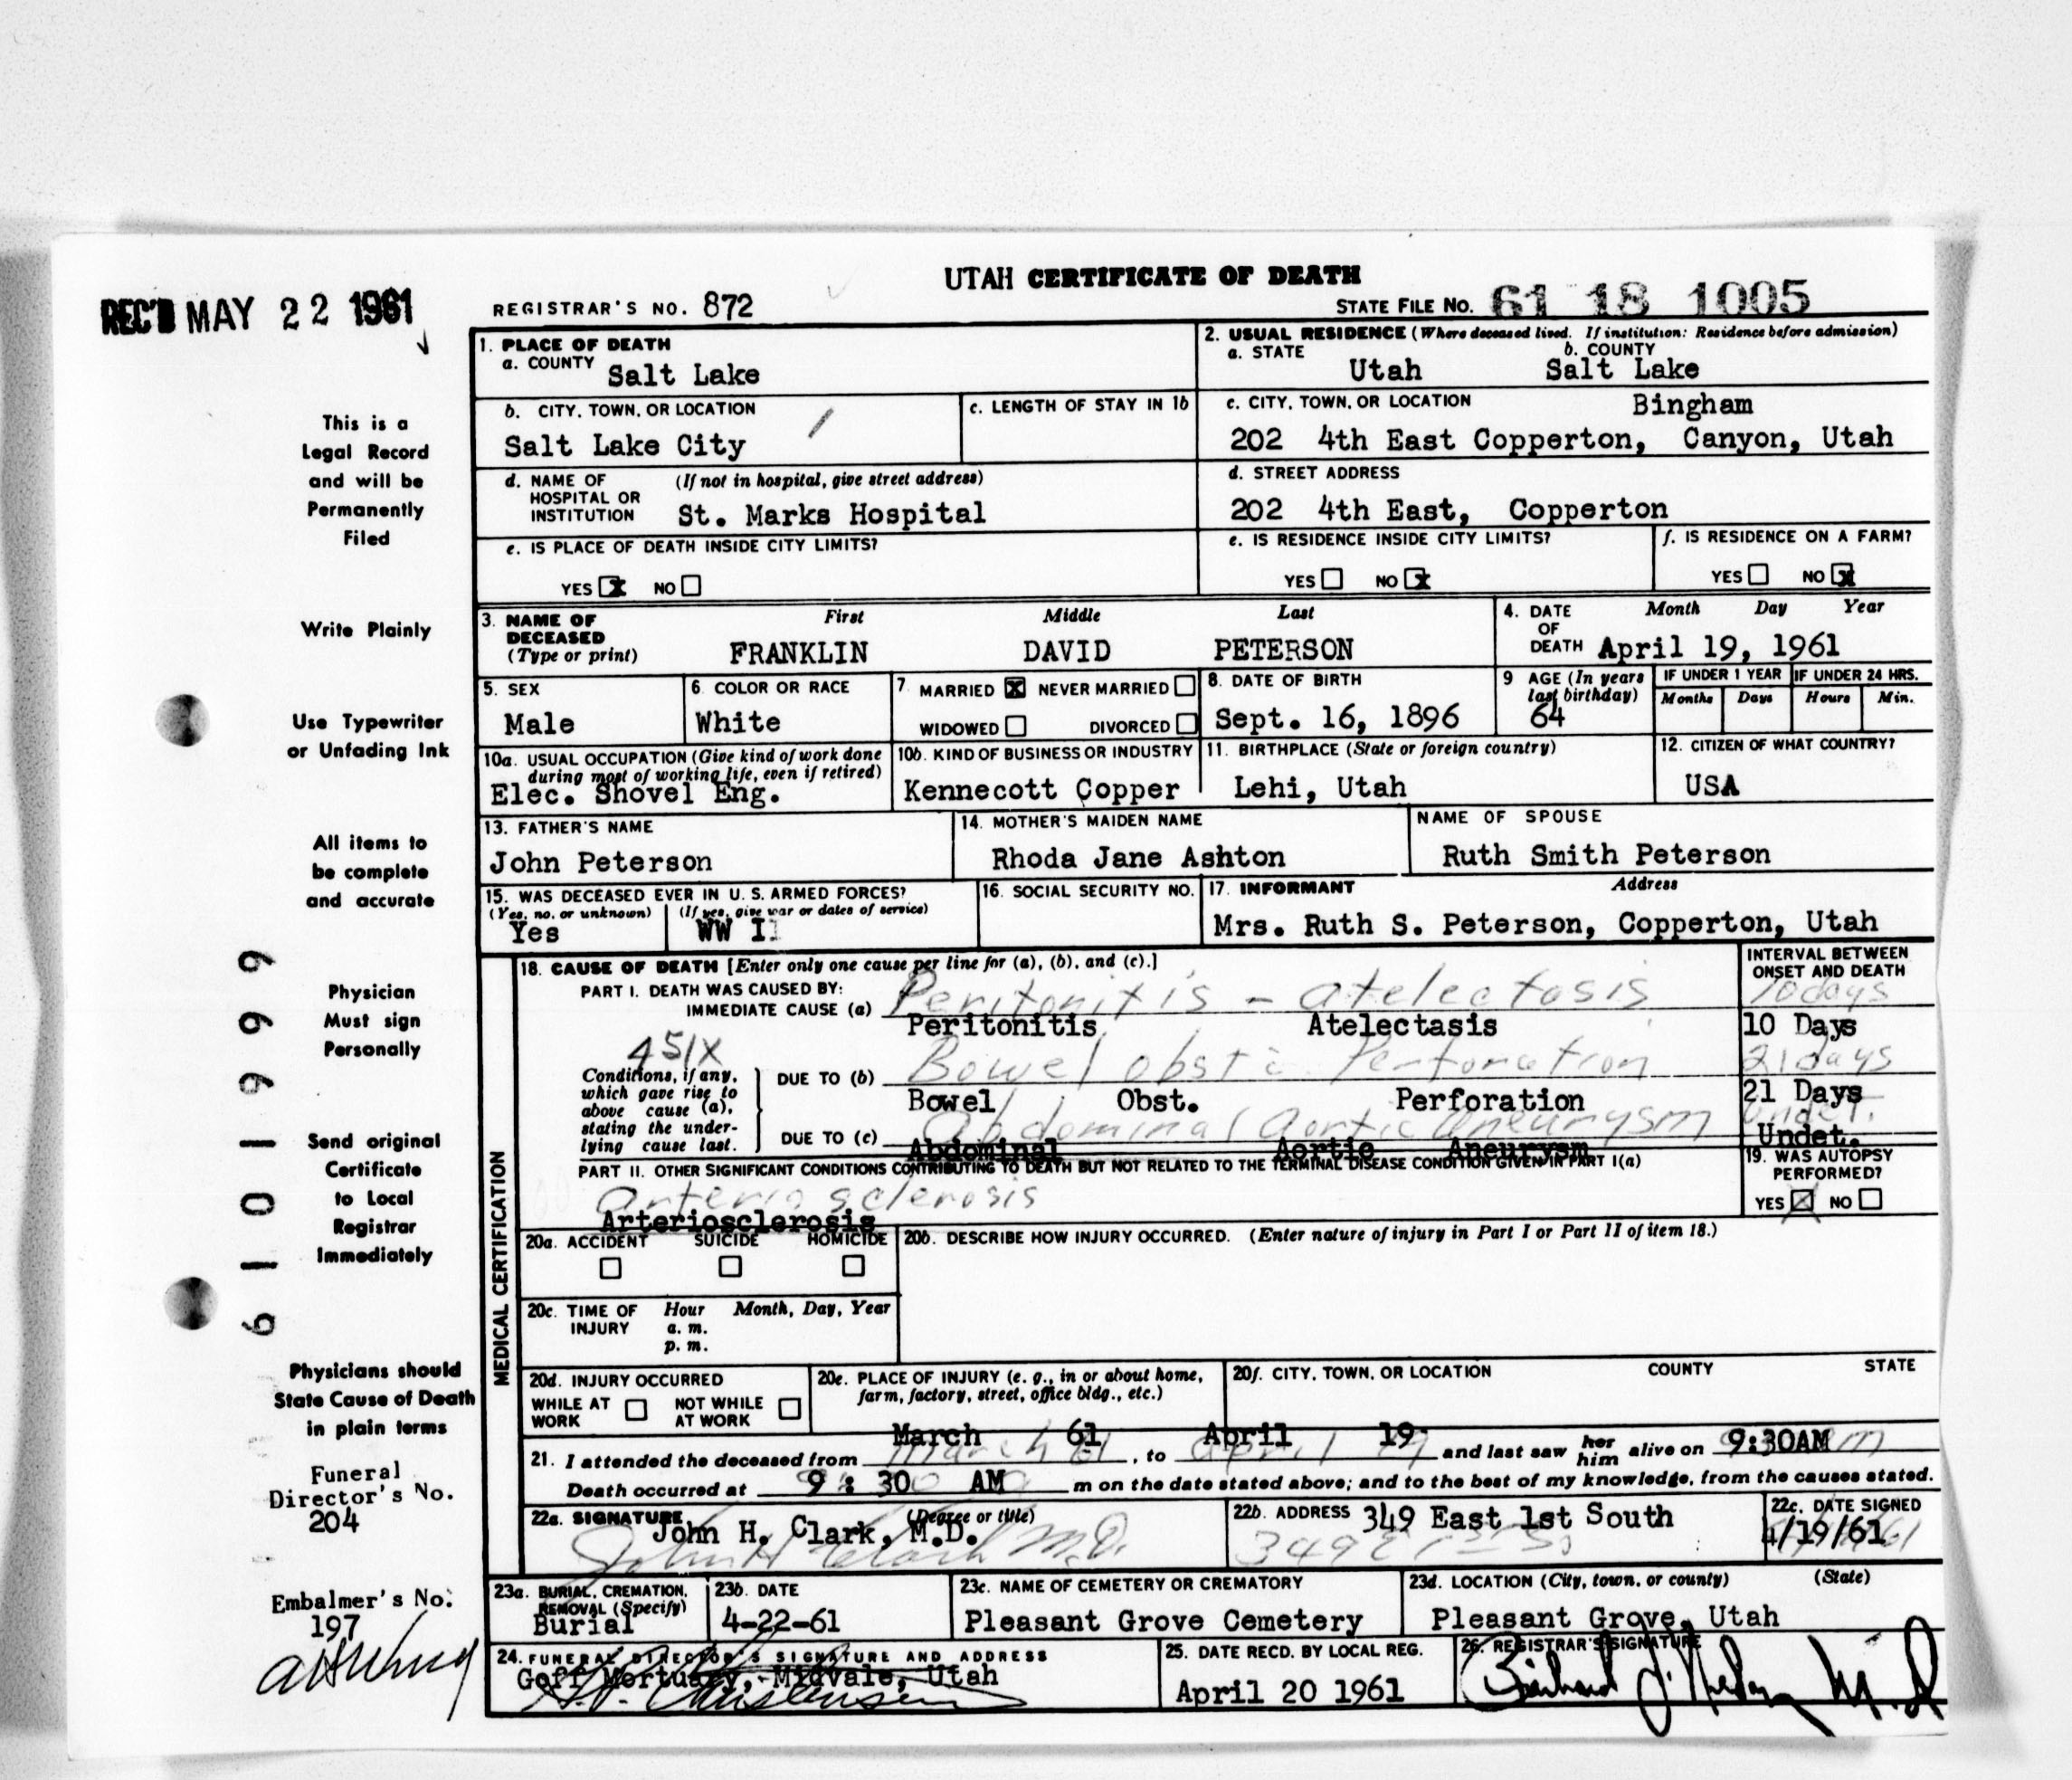 UTAH CERTIFICATE OF DEATH
REC'D MAY 22 1961
REGISTRAR'S NO. 872
STATE FILE NO. 61 18 1005
1. PLACE OF DEATH
a. COUNTY Salt Lake
2. USUAL RESIDENCE (Where deceased lived. If institution: Residence before admission)
a. STATE Utah b. COUNTY Salt Lake
b. CITY, TOWN, OR LOCATION
Salt Lake City
c. LENGTH OF STAY IN 1b
c. CITY, TOWN, OR LOCATION Bingham
202 4th East Copperton, Canyon, Utah
d. NAME OF HOSPITAL OR INSTITUTION (If not in hospital, give street address)
St. Marks Hospital
d. STREET ADDRESS
202 4th East, Copperton
e. IS PLACE OF DEATH INSIDE CITY LIMITS?
YES X NO
e. IS RESIDENCE INSIDE CITY LIMITS?
YES NO X
f. IS RESIDENCE ON A FARM?
YES NO X
3. NAME OF DECEASED (Type or print)
First Middle Last
FRANKLIN DAVID PETERSON
4. DATE OF DEATH Month Day Year
April 19, 1961
5. SEX
Male
6. COLOR OR RACE
White
7. MARRIED X NEVER MARRIED
WIDOWED DIVORCED
8. DATE OF BIRTH
Sept. 16, 1896
9 AGE (In years last birthday)
64
IF UNDER 1 YEAR IF UNDER 24 HRS.
Months Days Hours Min.
10a. USUAL OCCUPATION (Give kind of work done during most of working life, even if retired)
Elec. Shovel Eng.
10b. KIND OF BUSINESS OR INDUSTRY
Kennecott Copper
11. BIRTHPLACE (State or foreign country)
Lehi, Utah
12. CITIZEN OF WHAT COUNTRY?
USA
13. FATHER'S NAME
John Peterson
14. MOTHER'S MAIDEN NAME
Rhoda Jane Ashton
NAME OF SPOUSE
Ruth Smith Peterson
15. WAS DECEASED EVER IN U. S. ARMED FORCES?
(Yes, no, or unknown) (If yes, give war or dates of service)
Yes WW I
16. SOCIAL SECURITY NO.
17. INFORMANT Address
Mrs. Ruth S. Peterson, Copperton, Utah
18. CAUSE OF DEATH [Enter only one cause per line for (a), (b), and (c).]
INTERVAL BETWEEN ONSET AND DEATH
PART I. DEATH WAS CAUSED BY:
IMMEDIATE CAUSE (a) Peritonitis - atelectasis 10 days
Peritonitis Atelectasis 10 Days
451X
Conditions, if any, which gave rise to above cause (a), stating the underlying cause last.
DUE TO (b) Bowel obst. Perforation 21 days
Bowel Obst. Perforation 21 Days
DUE TO (c) Abdominal Aortic Aneurysm Undet.
Abdominal Aortic Aneurysm Undet.
PART II. OTHER SIGNIFICANT CONDITIONS CONTRIBUTING TO DEATH BUT NOT RELATED TO THE TERMINAL DISEASE CONDITION GIVEN IN PART I(a)
arteriosclerosis
Arteriosclerosis
19. WAS AUTOPSY PERFORMED?
YES X NO
20a. ACCIDENT SUICIDE HOMICIDE
20b. DESCRIBE HOW INJURY OCCURRED. (Enter nature of injury in Part I or Part II of item 18.)
20c. TIME OF INJURY Hour Month, Day, Year
a. m.
p. m.
20d. INJURY OCCURRED
WHILE AT WORK NOT WHILE AT WORK
20e. PLACE OF INJURY (e. g., in or about home, farm, factory, street, office bldg., etc.)
20f. CITY, TOWN, OR LOCATION COUNTY STATE
March 61 April 19
21. I attended the deceased from March 61, to April 19 and last saw her him alive on 9:30AM
Death occurred at 9:30 AM m on the date stated above; and to the best of my knowledge, from the causes stated.
22a. SIGNATURE (Degree or title)
John H. Clark, M.D.
John H Clark M.D.
22b. ADDRESS 349 East 1st South
22c. DATE SIGNED
4/19/61
23a. BURIAL, CREMATION, REMOVAL (Specify)
Burial
23b. DATE
4-22-61
23c. NAME OF CEMETERY OR CREMATORY
Pleasant Grove Cemetery
23d. LOCATION (City, town, or county) (State)
Pleasant Grove, Utah
24. FUNERAL DIRECTOR'S SIGNATURE AND ADDRESS
Goff Mortuary, Midvale, Utah
25. DATE RECD. BY LOCAL REG.
April 20 1961
26. REGISTRAR'S SIGNATURE
MEDICAL CERTIFICATION
This is a
Legal Record
and will be
Permanently
Filed
Write Plainly
Use Typewriter
or Unfading Ink
All items to
be complete
and accurate
Physician
Must sign
Personally
Send original
Certificate
to Local
Registrar
Immediately
Physicians should
State Cause of Death
in plain terms
Funeral
Director's No.
204
Embalmer's No:
197